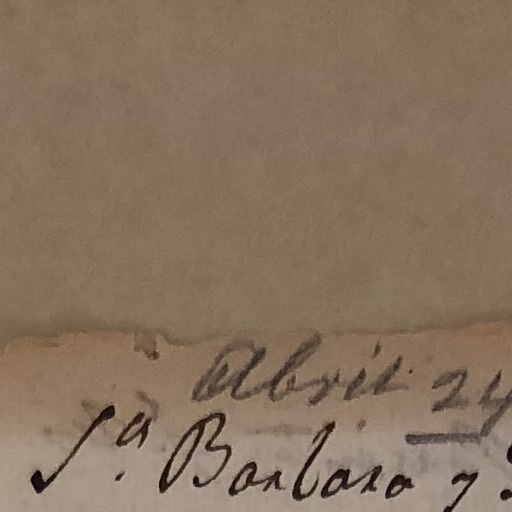 Abril 24
Sª. Barbara y